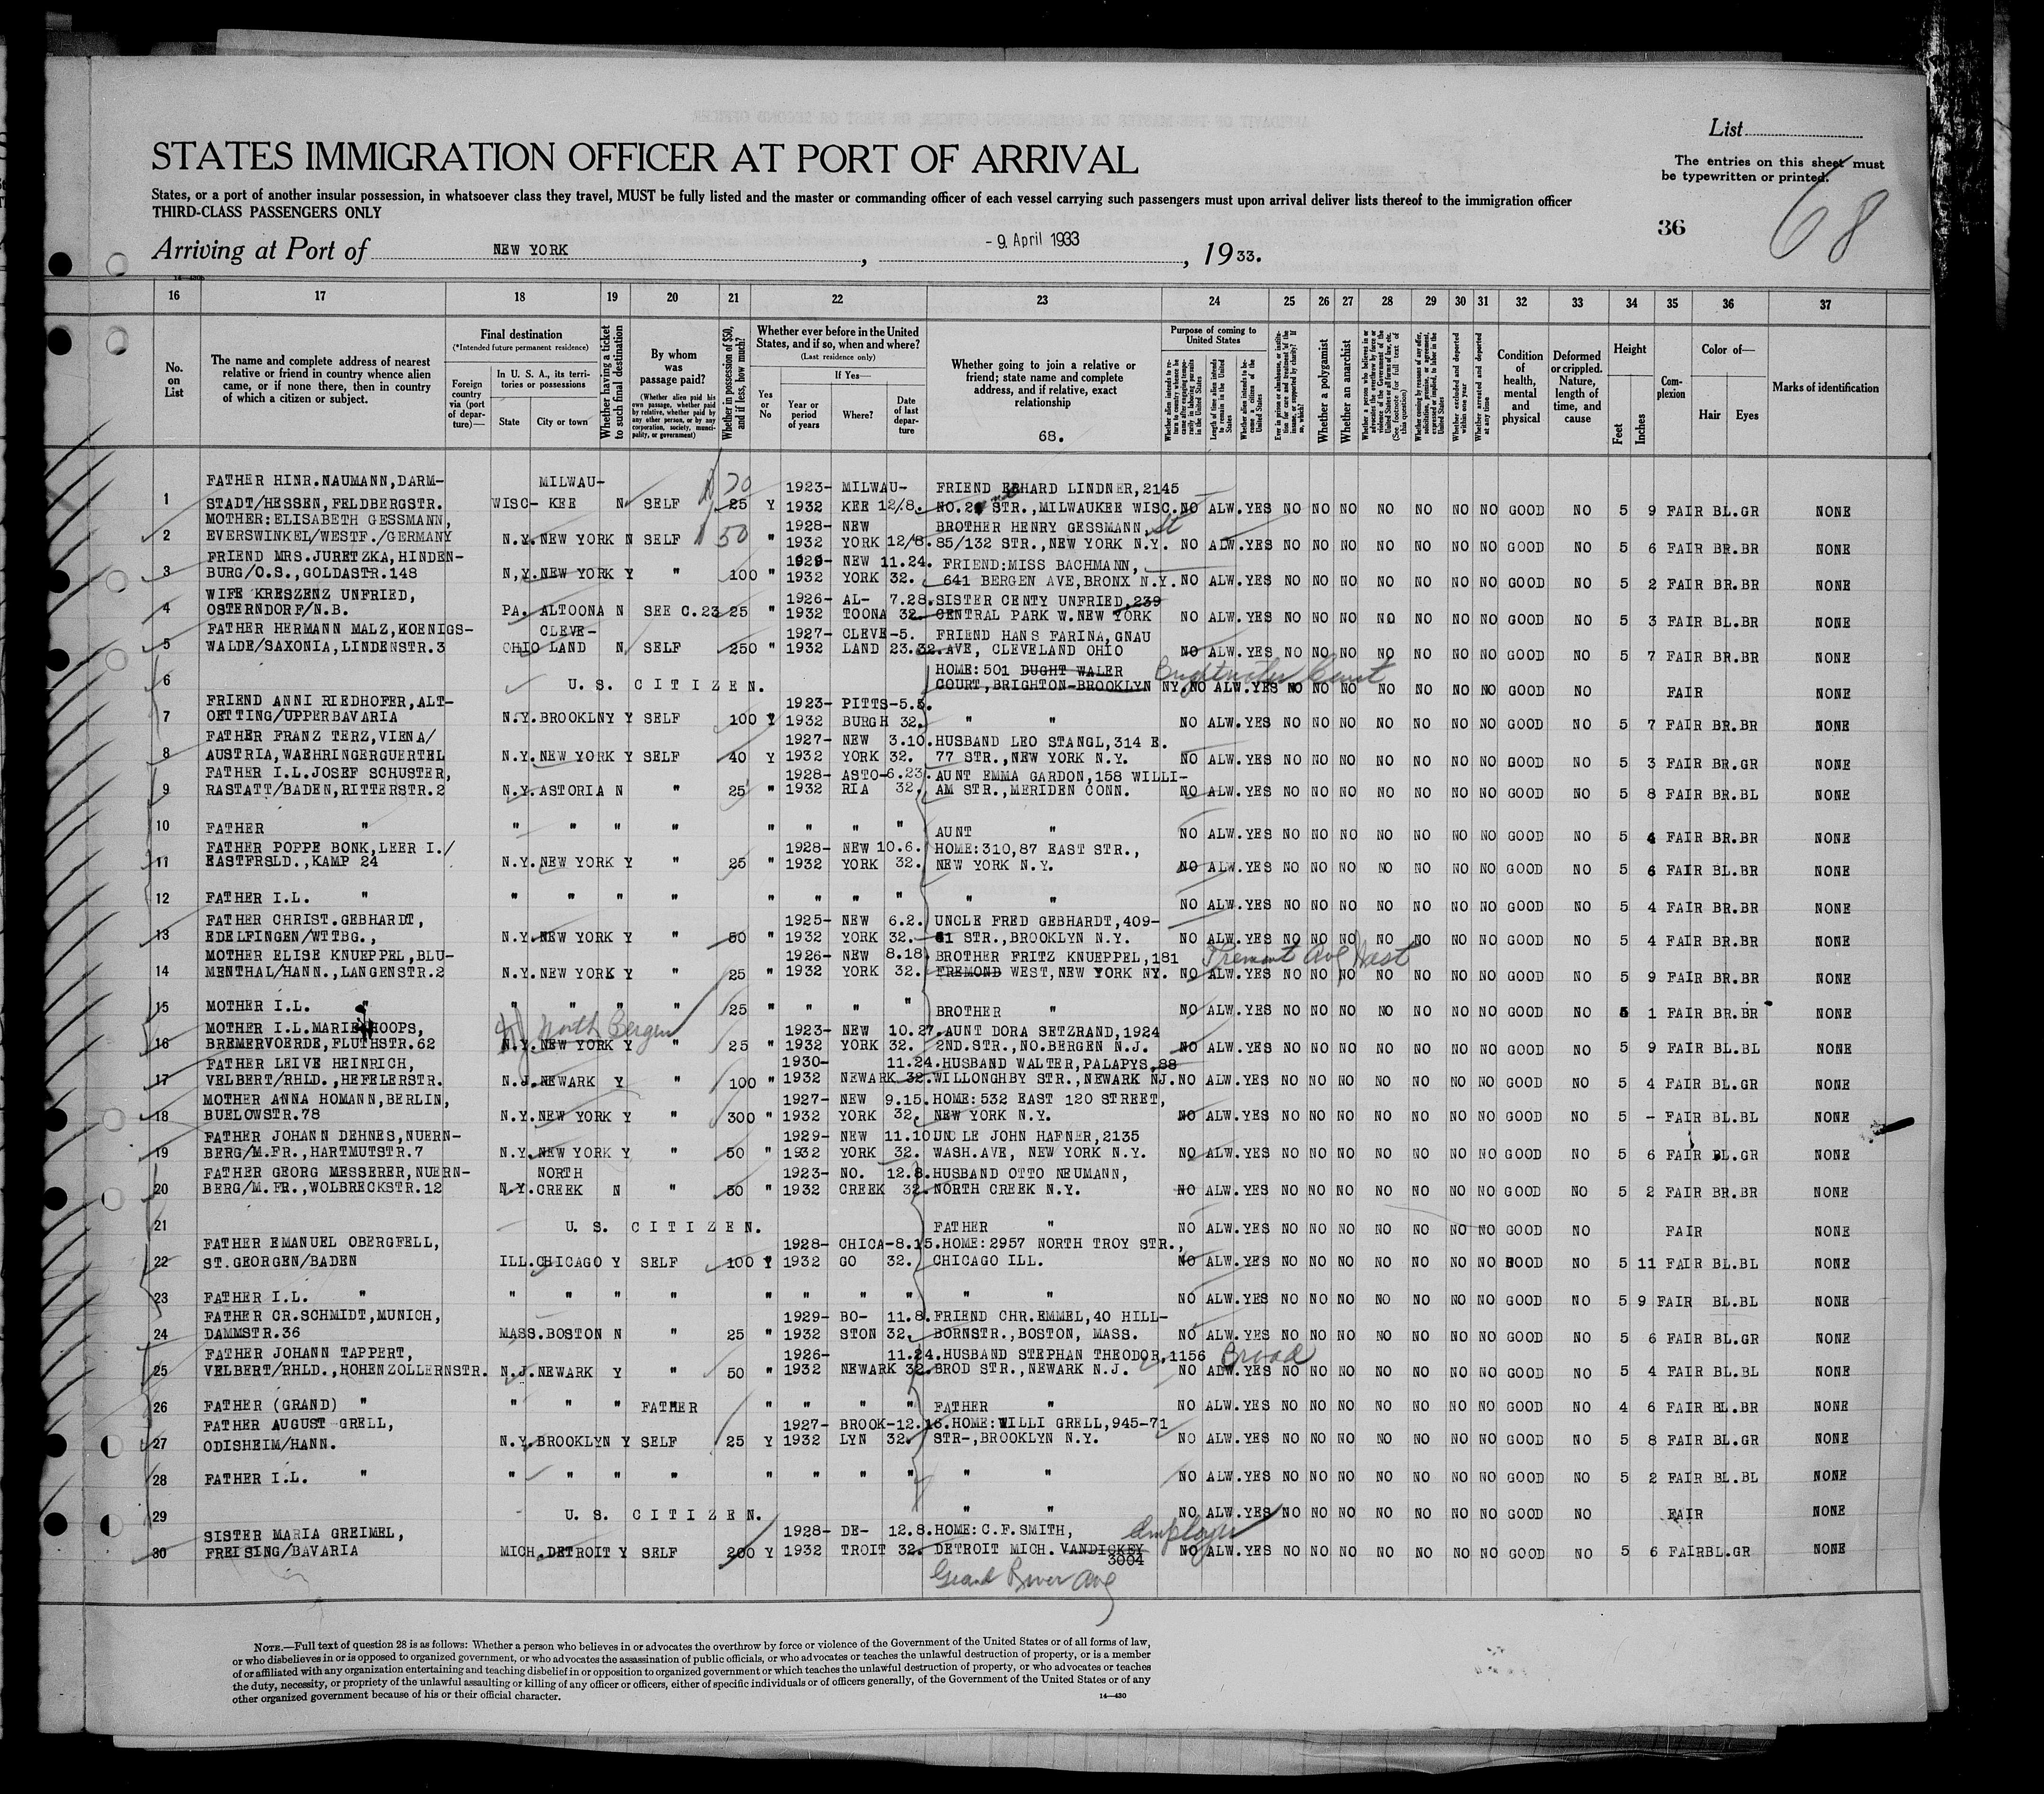 List
STATES IMMIGRATION OFFICER AT PORT OF ARRIVAL
The entries on this sheet must
be typewritten or printed.
States, or a port of another insular possession, in whatsoever class they travel, MUST be fully listed and the master or commanding officer of each vessel carrying such passengers must upon arrival deliver lists thereof to the immigration officer
THIRD-CLASS PASSENGERS ONLY
36
68
Arriving at Port of NEW YORK, - 9. April 1933, 1933.
16 17 18 19 20 21 22 23 24 25 26 27 28 29 30 31 32 33 34 35 36 37
No. on List
The name and complete address of nearest relative or friend in country whence alien came, or if none there, then in country of which a citizen or subject.
Final destination
(*Intended future permanent residence)
Foreign country via (port of departure)—
In U. S. A., its territories or possessions
State
City or town
Whether having a ticket to such final destination
By whom was passage paid?
(Whether alien paid his own passage, whether paid by relative, whether paid by any other person, or by any corporation, society, municipality, or government)
Whether in possession of $50, and if less, how much?
Whether ever before in the United States, and if so, when and where?
(Last residence only)
Yes or No
If Yes—
Year or period of years
Where?
Date of last departure
Whether going to join a relative or friend; state name and complete address, and if relative, exact relationship
68.
Purpose of coming to United States
Length of time alien intends to remain in the United States
Whether alien intends to become a citizen of the United States
Whether a polygamist
Whether an anarchist
Whether excluded and deported within one year
Whether arrested and deported at any time
Condition of health, mental and physical
Deformed or crippled. Nature, length of time, and cause
Height
Feet
Inches
Complexion
Color of—
Hair
Eyes
Marks of identification
70
FATHER HINR.NAUMANN,DARM- MILWAU- 1923- MILWAU- FRIEND ERHARD LINDNER,2145
1 STADT/HESSEN,FELDBERGSTR. WISC- KEE N SELF 25 Y 1932 KEE 12/8. STR.,MILWAUKEE WISC. NO ALW.YES NO NO NO NO NO NO NO GOOD NO 5 9 FAIR BL.GR NONE
MOTHER:ELISABETH GESSMANN, 1928- NEW BROTHER HENRY GESSMANN, St
2 EVERSWINKEL/WESTF./GERMANY N.Y. NEW YORK N SELF 50 " 1932 YORK 12/8. 85/132 STR.,NEW YORK N.Y. NO ALW.YES NO NO NO NO NO NO NO GOOD NO 5 6 FAIR BR.BR NONE
FRIEND MRS.JURETZKA,HINDEN- 1929- NEW 11.24. FRIEND:MISS BACHMANN,
3 BURG/O.S.,GOLDASTR.148 N,Y. NEW YORK Y " 100 " 1932 YORK 32. 641 BERGEN AVE,BRONX N.Y. NO ALW.YES NO NO NO NO NO NO NO GOOD NO 5 2 FAIR BR.BR NONE
WIFE KRESZENZ UNFRIED, 1926- AL- 7.28. SISTER CENTY UNFRIED,239
4 OSTERNDORF/N.B. PA. ALTOONA N SEE C.23 25 " 1932 TOONA 32. CENTRAL PARK W.NEW YORK NO ALW.YES NO NO NO NO NO NO NO GOOD NO 5 3 FAIR BL.BR NONE
FATHER HERMANN MALZ,KOENIGS- CLEVE- 1927- CLEVE-5. FRIEND HANS FARINA,GNAU
5 WALDE/SAXONIA,LINDENSTR.3 OHIO LAND N SELF 250 " 1932 LAND 23.32. AVE, CLEVELAND OHIO NO ALW.YES NO NO NO NO NO NO NO GOOD NO 5 7 FAIR BR.BR NONE
HOME:501 DUGHT WALER Brightwater Court
6 U. S. CITIZEN. COURT,BRIGHTON-BROOKLYN NY. NO ALW.YES NO NO NO NO NO NO NO GOOD NO FAIR NONE
FRIEND ANNI RIEDHOFER,ALT- 1923- PITTS-5.5.
7 OETTING/UPPERBAVARIA N.Y. BROOKLNY Y SELF 100 Y 1932 BURGH 32. " " NO ALW.YES NO NO NO NO NO NO NO GOOD NO 5 7 FAIR BR.BR NONE
FATHER FRANZ TERZ,VIENA/ 1927- NEW 3.10. HUSBAND LEO STANGL,314 E.
8 AUSTRIA,WAEHRINGERGUERTEL N.Y. NEW YORK Y SELF 40 Y 1932 YORK 32. 77 STR.,NEW YORK N.Y. NO ALW.YES NO NO NO NO NO NO NO GOOD NO 5 3 FAIR BR.GR NONE
FATHER I.L.JOSEF SCHUSTER, 1928- ASTO-6.23. AUNT EMMA GARDON,158 WILLI-
9 RASTATT/BADEN,RITTERSTR.2 N.Y. ASTORIA N " 25 " 1932 RIA 32. AM STR.,MERIDEN CONN. NO ALW.YES NO NO NO NO NO NO NO GOOD NO 5 8 FAIR BR.BL NONE
10 FATHER " " " " " " " " " AUNT " NO ALW.YES NO NO NO NO NO NO NO GOOD NO 5 4 FAIR BR.BR NONE
FATHER POPPE BONK,LEER I./ 1928- NEW 10.6. HOME:310,87 EAST STR.,
11 EASTFRSLD.,KAMP 24 N.Y. NEW YORK Y " 25 " 1932 YORK 32. NEW YORK N.Y. NO ALW.YES NO NO NO NO NO NO NO GOOD NO 5 6 FAIR BL.BR NONE
12 FATHER I.L. " " " " " " " " " " " NO ALW.YES NO NO NO NO NO NO NO GOOD NO 5 4 FAIR BR.BR NONE
FATHER CHRIST.GEBHARDT, 1925- NEW 6.2. UNCLE FRED GEBHARDT,409-
13 EDELFINGEN/WTTBG., N.Y. NEW YORK Y " 50 " 1932 YORK 32. 61 STR.,BROOKLYN N.Y. NO ALW.YES NO NO NO NO NO NO NO GOOD NO 5 4 FAIR BR.BR NONE
MOTHER ELISE KNUEPPEL,BLU- 1926- NEW 8.18. BROTHER FRITZ KNUEPPEL,181 Tremont Ave West
14 MENTHAL/HANN.,LANGENSTR.2 N.Y. NEW YORK Y " 25 " 1932 YORK 32. FREMOND WEST,NEW YORK NY. NO ALW.YES NO NO NO NO NO NO NO GOOD NO 5 9 FAIR BR.BR NONE
15 MOTHER I.L. " " " " " 25 " " " " BROTHER " NO ALW.YES NO NO NO NO NO NO NO GOOD NO 5 1 FAIR BR.BR NONE
MOTHER I.L.MARIE HOOPS, NJ North Bergen 1923- NEW 10.27. AUNT DORA SETZRAND,1924
16 BREMERVOERDE,FLUTHSTR.62 N.Y. NEW YORK Y " 25 " 1932 YORK 32. 2ND.STR.,NO.BERGEN N.J. NO ALW.YES NO NO NO NO NO NO NO GOOD NO 5 9 FAIR BL.BL NONE
FATHER LEIVE HEINRICH, 1930- 11.24. HUSBAND WALTER,PALAPYS,88
17 VELBERT/RHLD.,HEFELERSTR. N.J. NEWARK Y " 100 " 1932 NEWARK 32. WILLONGHBY STR.,NEWARK NJ. NO ALW.YES NO NO NO NO NO NO NO GOOD NO 5 4 FAIR BL.GR NONE
MOTHER ANNA HOMANN,BERLIN, 1927- NEW 9.15. HOME:532 EAST 120 STREET,
18 BUELOWSTR.78 N.Y. NEW YORK Y " 300 " 1932 YORK 32. NEW YORK N.Y. NO ALW.YES NO NO NO NO NO NO NO GOOD NO 5 - FAIR BL.BL NONE
FATHER JOHANN DEHNES,NUERN- 1929- NEW 11.10 UNCLE JOHN HAFNER,2135
19 BERG/M.FR.,HARTMUTSTR.7 N.Y. NEW YORK Y " 50 " 1932 YORK 32. WASH.AVE, NEW YORK N.Y. NO ALW.YES NO NO NO NO NO NO NO GOOD NO 5 6 FAIR BL.GR NONE
FATHER GEORG MESSERER,NUERN- NORTH 1923- NO. 12.8. HUSBAND OTTO NEUMANN,
20 BERG/M.FR.,WOLBRECKSTR.12 N.Y. CREEK N " 50 " 1932 CREEK 32. NORTH CREEK N.Y. NO ALW.YES NO NO NO NO NO NO NO GOOD NO 5 2 FAIR BR.BR NONE
21 U. S. CITIZEN. FATHER " NO ALW.YES NO NO NO NO NO NO NO GOOD NO FAIR NONE
FATHER EMANUEL OBERGFELL, 1928- CHICA-8.15. HOME:2957 NORTH TROY STR.,
22 ST.GEORGEN/BADEN ILL. CHICAGO Y SELF 100 Y 1932 GO 32. CHICAGO ILL. NO ALW.YES NO NO NO NO NO NO NO GOOD NO 5 11 FAIR BL.BL NONE
23 FATHER I.L. " " " " " " " " " " " NO ALW.YES NO NO NO NO NO NO NO GOOD NO 5 9 FAIR BL.BL NONE
FATHER CR.SCHMIDT,MUNICH, 1929- BO- 11.8. FRIEND CHR.EMMEL,40 HILL-
24 DAMMSTR.36 MASS. BOSTON N " 25 " 1932 STON 32. BORNSTR.,BOSTON, MASS. NO ALW.YES NO NO NO NO NO NO NO GOOD NO 5 6 FAIR BL.GR NONE
FATHER JOHANN TAPPERT, 1926- 11.24. HUSBAND STEPHAN THEODOR,1156 Broad
25 VELBERT/RHLD.,HOHENZOLLERNSTR. N.J. NEWARK Y " 50 " 1932 NEWARK 32. BROD STR.,NEWARK N.J. NO ALW.YES NO NO NO NO NO NO NO GOOD NO 5 4 FAIR BL.BL NONE
26 FATHER (GRAND) " " " " FATHER " " " " FATHER " NO ALW.YES NO NO NO NO NO NO NO GOOD NO 4 6 FAIR BL.BR NONE
FATHER AUGUST GRELL, 1927- BROOK-12.16. HOME:WILLI GRELL,945-71
27 ODISHEIM/HANN. N.Y. BROOKLYN Y SELF 25 Y 1932 LYN 32. STR-,BROOKLYN N.Y. NO ALW.YES NO NO NO NO NO NO NO GOOD NO 5 8 FAIR BL.GR NONE
28 FATHER I.L. " " " " " " " " " " " NO ALW.YES NO NO NO NO NO NO NO GOOD NO 5 2 FAIR BL.BL NONE
29 U. S. CITIZEN. " " NO ALW.YES NO NO NO NO NO NO NO GOOD NO FAIR NONE
SISTER MARIA GREIMEL, 1928- DE- 12.8. HOME:C.F.SMITH, employer
30 FREISING/BAVARIA MICH. DETROIT Y SELF 200 Y 1932 TROIT 32. DETROIT MICH. VANDICKEY NO ALW.YES NO NO NO NO NO NO NO GOOD NO 5 6 FAIR BL.GR NONE
3004
Grand River Ave
NOTE.—Full text of question 28 is as follows: Whether a person who believes in or advocates the overthrow by force or violence of the Government of the United States or of all forms of law,
or who disbelieves in or is opposed to organized government, or who advocates the assassination of public officials, or who advocates or teaches the unlawful destruction of property, or is a member
of or affiliated with any organization entertaining and teaching disbelief in or opposition to organized government or which teaches the unlawful destruction of property, or who advocates or teaches
the duty, necessity, or propriety of the unlawful assaulting or killing of any officer or officers, either of specific individuals or of officers generally, of the Government of the United States or of any
other organized government because of his or their official character.
14—430